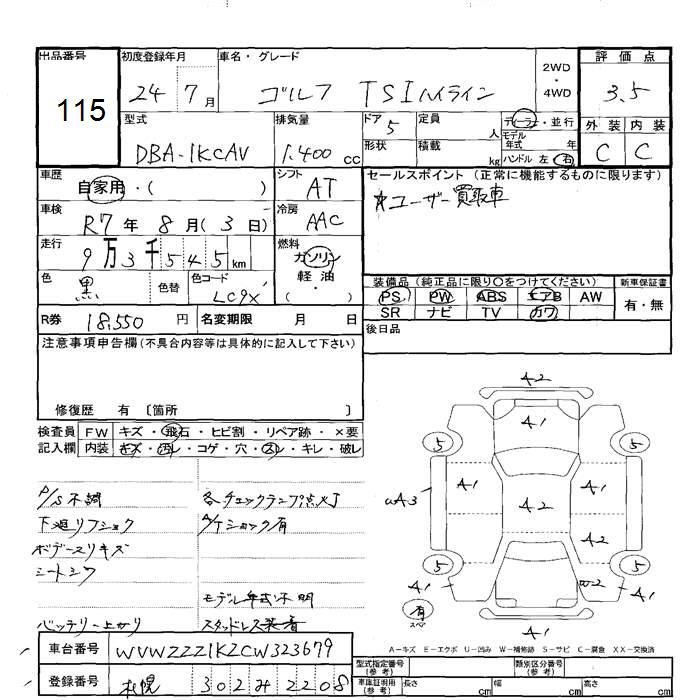 出品番号 初度登録年月 車名・グレード 2WD・4WD 評価点
115 24 7月 ゴルフ TSI Nライン 3.5
型式 排気量 ドア 5 定員 人 ディーラー・並行 外装 内装
DBA-1KCAV 1.400 cc 形状 積載 kg モデル年式 年 ハンドル 左 右 C C
車歴 自家用・( ) シフト AT セールスポイント (正常に機能するものに限ります)
車検 R7年 8月(3日) 冷房 AAC ユーザー買取車
走行 9万3千545km 燃料 ガソリン
色 黒 色替 色コード LC9X 軽油 ( )
装備品 (純正品に限り○をつけてください) 新車保証書
PS PW ABS エアB AW 有・無
SR ナビ TV カワ
R券 18,550円 名変期限 月 日 後日品
注意事項申告欄(不具合内容等は具体的に記入して下さい)
修復歴 有 〔箇所 〕
検査員 FW キズ・飛石・ヒビ割・リペア跡・×要
記入欄 内装 キズ・汚レ・コゲ・穴・スレ・キレ・破レ
P/S不調 各チェックランプ点灯
下廻リフショク A/Tショック有
ボデースリキズ
シートシワ
モデル年式不明
バッテリー上がり スタッドレス装着
A2
A1
5 5
A1 A1
uA3 A2
A2
5 5
A1 W2 A1
有 スペア
A1
A-キズ E-エクボ U-凹み W-補修跡 S-サビ C-腐食 XX-交換済
車台番号 WVWZZZ1KZCW323679
登録番号 札幌 302 み 2208
型式指定番号(参考) 類別区分番号(参考)
車庫証明用(参考) 長さ cm 幅 cm 高さ cm